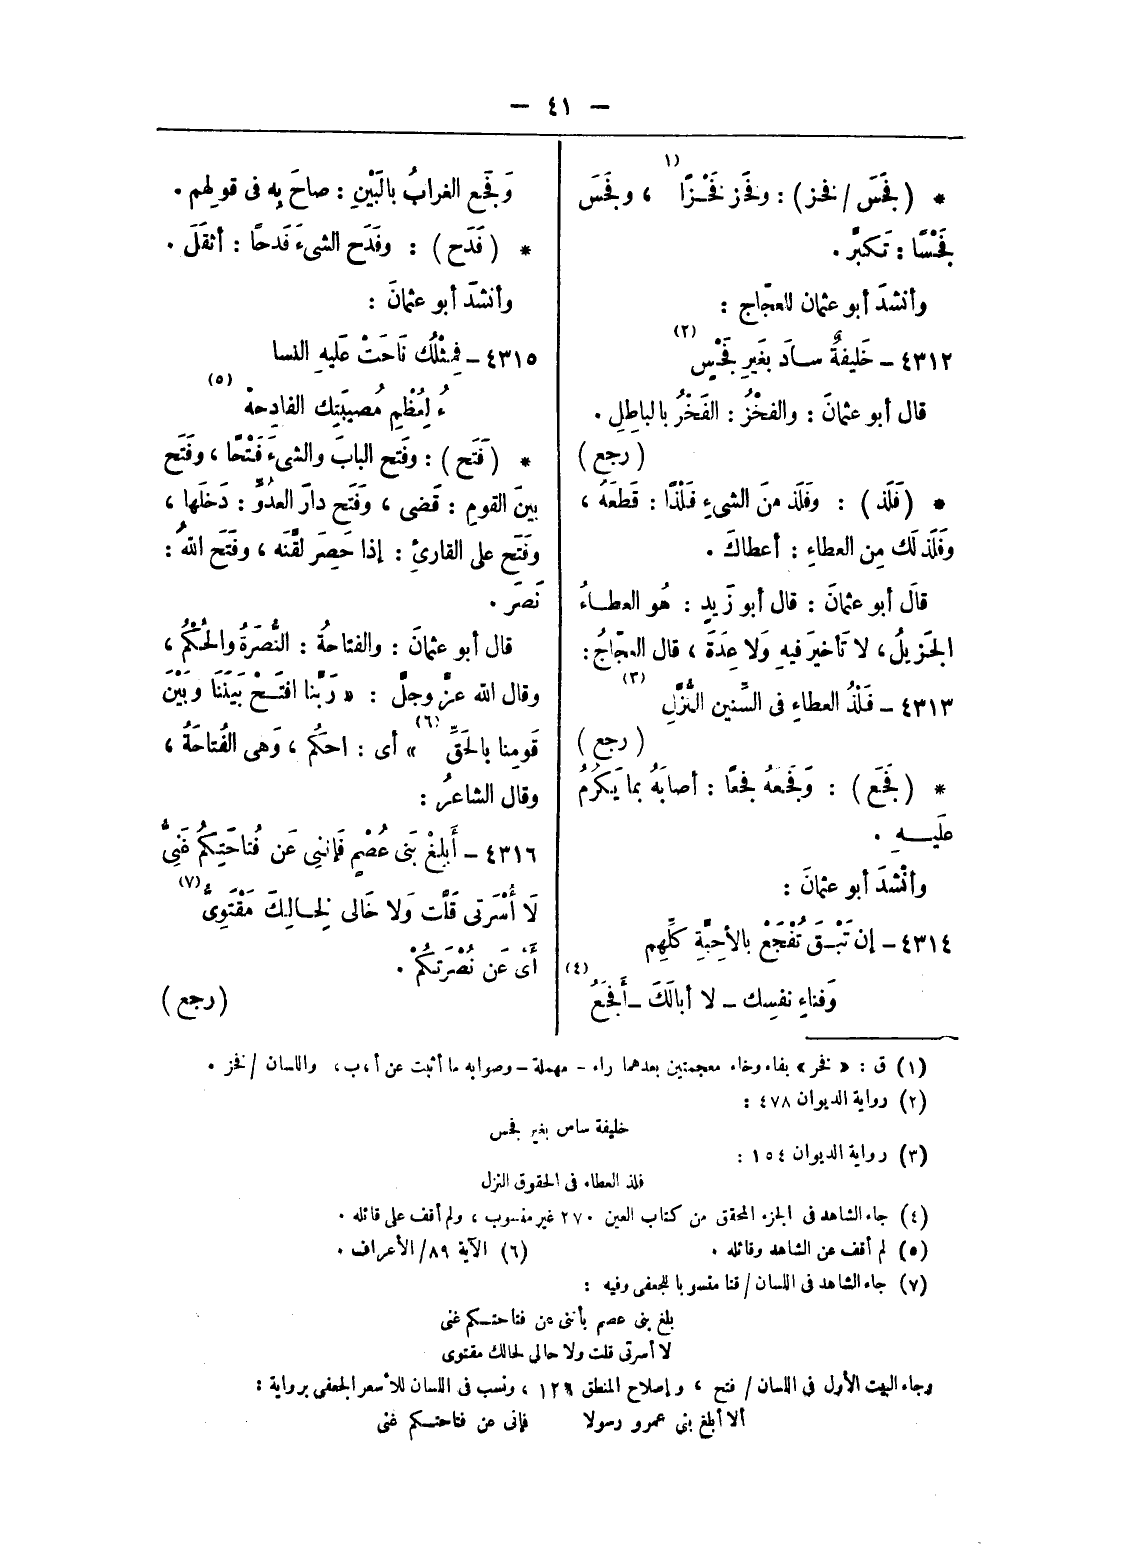 — ٤١ —
* (فَخَسَ / فخز) : وفَخَز فَخْـزًا (١) ، وفَخَسَ
فَخْسًا : تَكبَّر .
وأنشدَ أبو عثمان للعجّاج :
٤٣١٢ – خَليفةٌ سـادَ بغَيرِ فَخْسٍ (٢)
قال أبو عثمانَ : والفخْزُ : الفَخْرُ بالباطِلِ .
(رجع)
* (فَلَذ) : وفَلَذ منَ الشىءِ فَلْذًا : قَطعَهُ ،
وفَلَذ لَك مِن العطاءِ : أعطاكَ .
قالَ أبو عثمانَ : قال أبو زَيدٍ : هُو العطـاءُ
الجَزيلُ ، لا تَأخيرَ فيهِ وَلا عِدَةَ ، قال العجّاجُ :
٤٣١٣ – فَـلْذُ العطاءِ فى السِّنين النُّزَّلِ (٣)
(رجع)
* (فَجَع) : وَفَجَعهُ فَجعًا : أصابَهُ بما يَكرُمُ
عَلَيـــهِ .
وأنْشدَ أبو عثمانَ :
٤٣١٤ – إن تَبْـقَ تُفْجَعْ بالأحِبَّةِ كلِّهِم
وَفناءِ نفسِك – لا أبالَكَ – أَفجَعُ (٤)
وَفَجَع الغرابُ بالبَيْنِ : صاحَ بِه فى قولِهم .
* (فَدَح) : وفَدَح الشىءَ فَدحًا : أثقَلَ .
وأنشدَ أبو عثمانَ :
٤٣١٥ – فمِثْلُك نَاحَتْ عَليهِ النسا
ءُ لِعُظْمِ مُصيبَتِك الفادِحهْ (٥)
* (فَتَح) : وفَتح البابَ والشىءَ فَتْحًا ، وفَتَح
بينَ القومِ : قَضى ، وفَتَح دارَ العدُوِّ : دَخلَها ،
وفَتَح على القارئِ : إذا حَصِرَ لقَّنه ، وفَتَح اللهُ :
نَصَرَ .
قال أبو عثمانَ : والفتاحةُ : النُّصْرَةُ والحُكْمُ ،
وقال الله عزَّ وجلَّ : « رَبَّنا افتَـحْ بَيْنَنَا وبَيْنَ
قَومِنا بالحَقِّ (٦) » أى : احكُم ، وَهى الفُتاحَةُ ،
وقال الشاعرُ :
٤٣١٦ – أَبلِغْ بَنى عُصْمٍ فَإننِى عَن فُتاحَتِكُم غَنِىُّ
لَا أُسْرَتى قَلَّت وَلا خَالى لِخـالِكَ مَقْتَوِىُّ (٧)
أَىْ عَن نُصْرَتكُمْ .
(رجع)
(١) ق : « فخر » بفاء وخاء معجمتين بعدهما راء – مهملة – وصوابه ما أثبت عن أ ، ب ، واللسان / فخز .
(٢) رواية الديوان ٤٧٨ :
خليفة ساس بغير فجس
(٣) رواية الديوان ١٥٤ :
فلذ العطاء فى الحقوق النزل
(٤) جاء الشاهد فى الجزء المحقق من كتاب العين ٢٧٠ غير منسوب ، ولم أقف على قائله .
(٥) لم أقف عن الشاهد وقائله . (٦) الآية ٨٩/ الأعراف .
(٧) جاء الشاهد فى اللسان / قتا منسوبا للجعفى وفيه :
بلغ بنى عصم بأننى عن فتاحتـكم غنى
لا أسرتى قلت ولا حالى لحالك مقتوى
وجاء البيت الأول فى اللسان / فتح ، وإصلاح المنطق ١٢٦ ، ونسب فى اللسان للأسعر الجعفى برواية :
ألا أبلغ بنى عمرو رسولا فإنى عن فتاحتـكم غنى